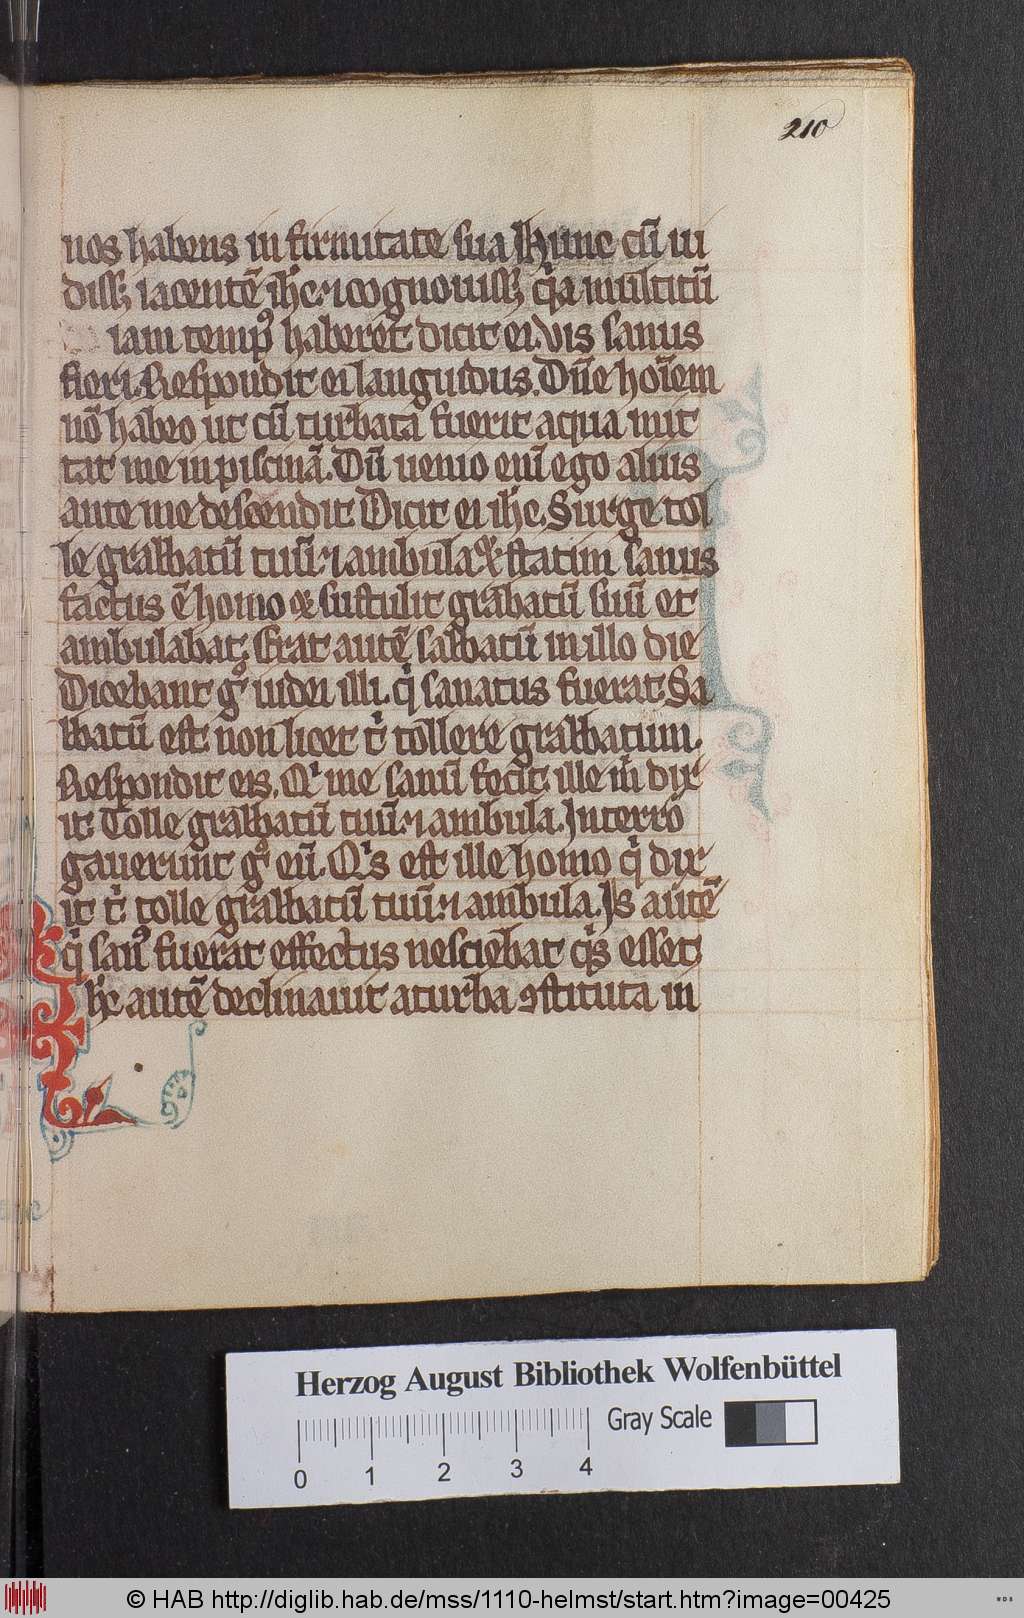 210
nos habens in firmitate sua Hunc cū ui
diss; iacentē ih̄c ⁊ cognouiss; q̄a multitū
iam temp9 haberet dicit ei. Vis sanus
fieri. Respondit ei languidus. Dn̄e hoīem
nō habeo ut cū turbata fuerit aqua mit
tat me in piscinā. Dū uenio eni ego alius
ante me descendit Dicit ei ih̄c. Surge tol
le grabbatū tuū ⁊ ambula. et statim sanus
factus ē homo et sustulit grabatū suū et
ambulabat. Erat autē sabbatū in illo die
Dicebant gͦ iudei illi. qͥ sanatus fuerat. Sa
bbatū est. non licet tͥ tollere grabbatum.
Respondit eis. Qͥ me sanū fecit. ille mͥ dix
it. Tolle grabbatū tuū ⁊ ambula. Interro
gauerunt gͦ eū. Qͥs est ille homo qͥ dix
it tͥ. tolle grabbatū tuū ⁊ ambula. Is autē
qͥ san9 fuerat effectus nesciebat qͥs esset.
ih̄c autē declinauit a turba ꝯstituta in
Herzog August Bibliothek Wolfenbüttel
Gray Scale
0 1 2 3 4
© HAB http://diglib.hab.de/mss/1110-helmst/start.htm?image=00425